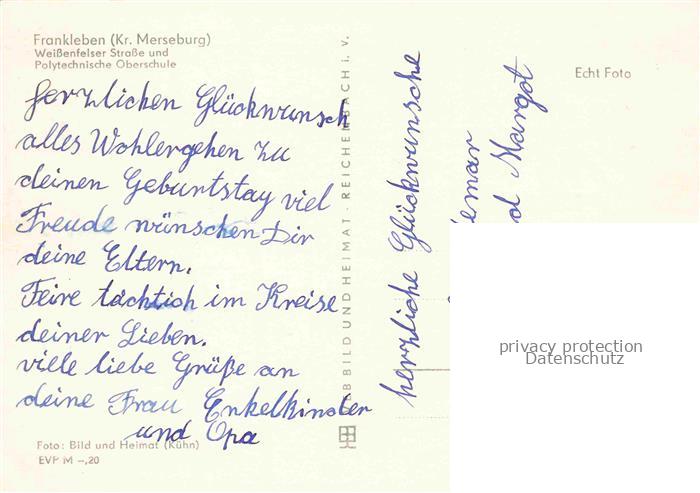 Frankleben (Kr. Merseburg)
Weißenfelser Straße und
Polytechnische Oberschule
Echt Foto
herzlichen Glückwunsch
alles Wohlergehen zu
deinen Geburtstag viel
Freude wünschen Dir
deine Eltern.
Feire tüchtich im Kreise
deiner Lieben.
viele liebe Grüße an
deine Frau Enkelkinder
und Opa
Foto: Bild und Heimat (Kühn)
EVP M –,20
BILD UND HEIMAT · REICHENBACH i. V.
herzliche Glückwunsche
emar
d Margot
privacy protection
Datenschutz